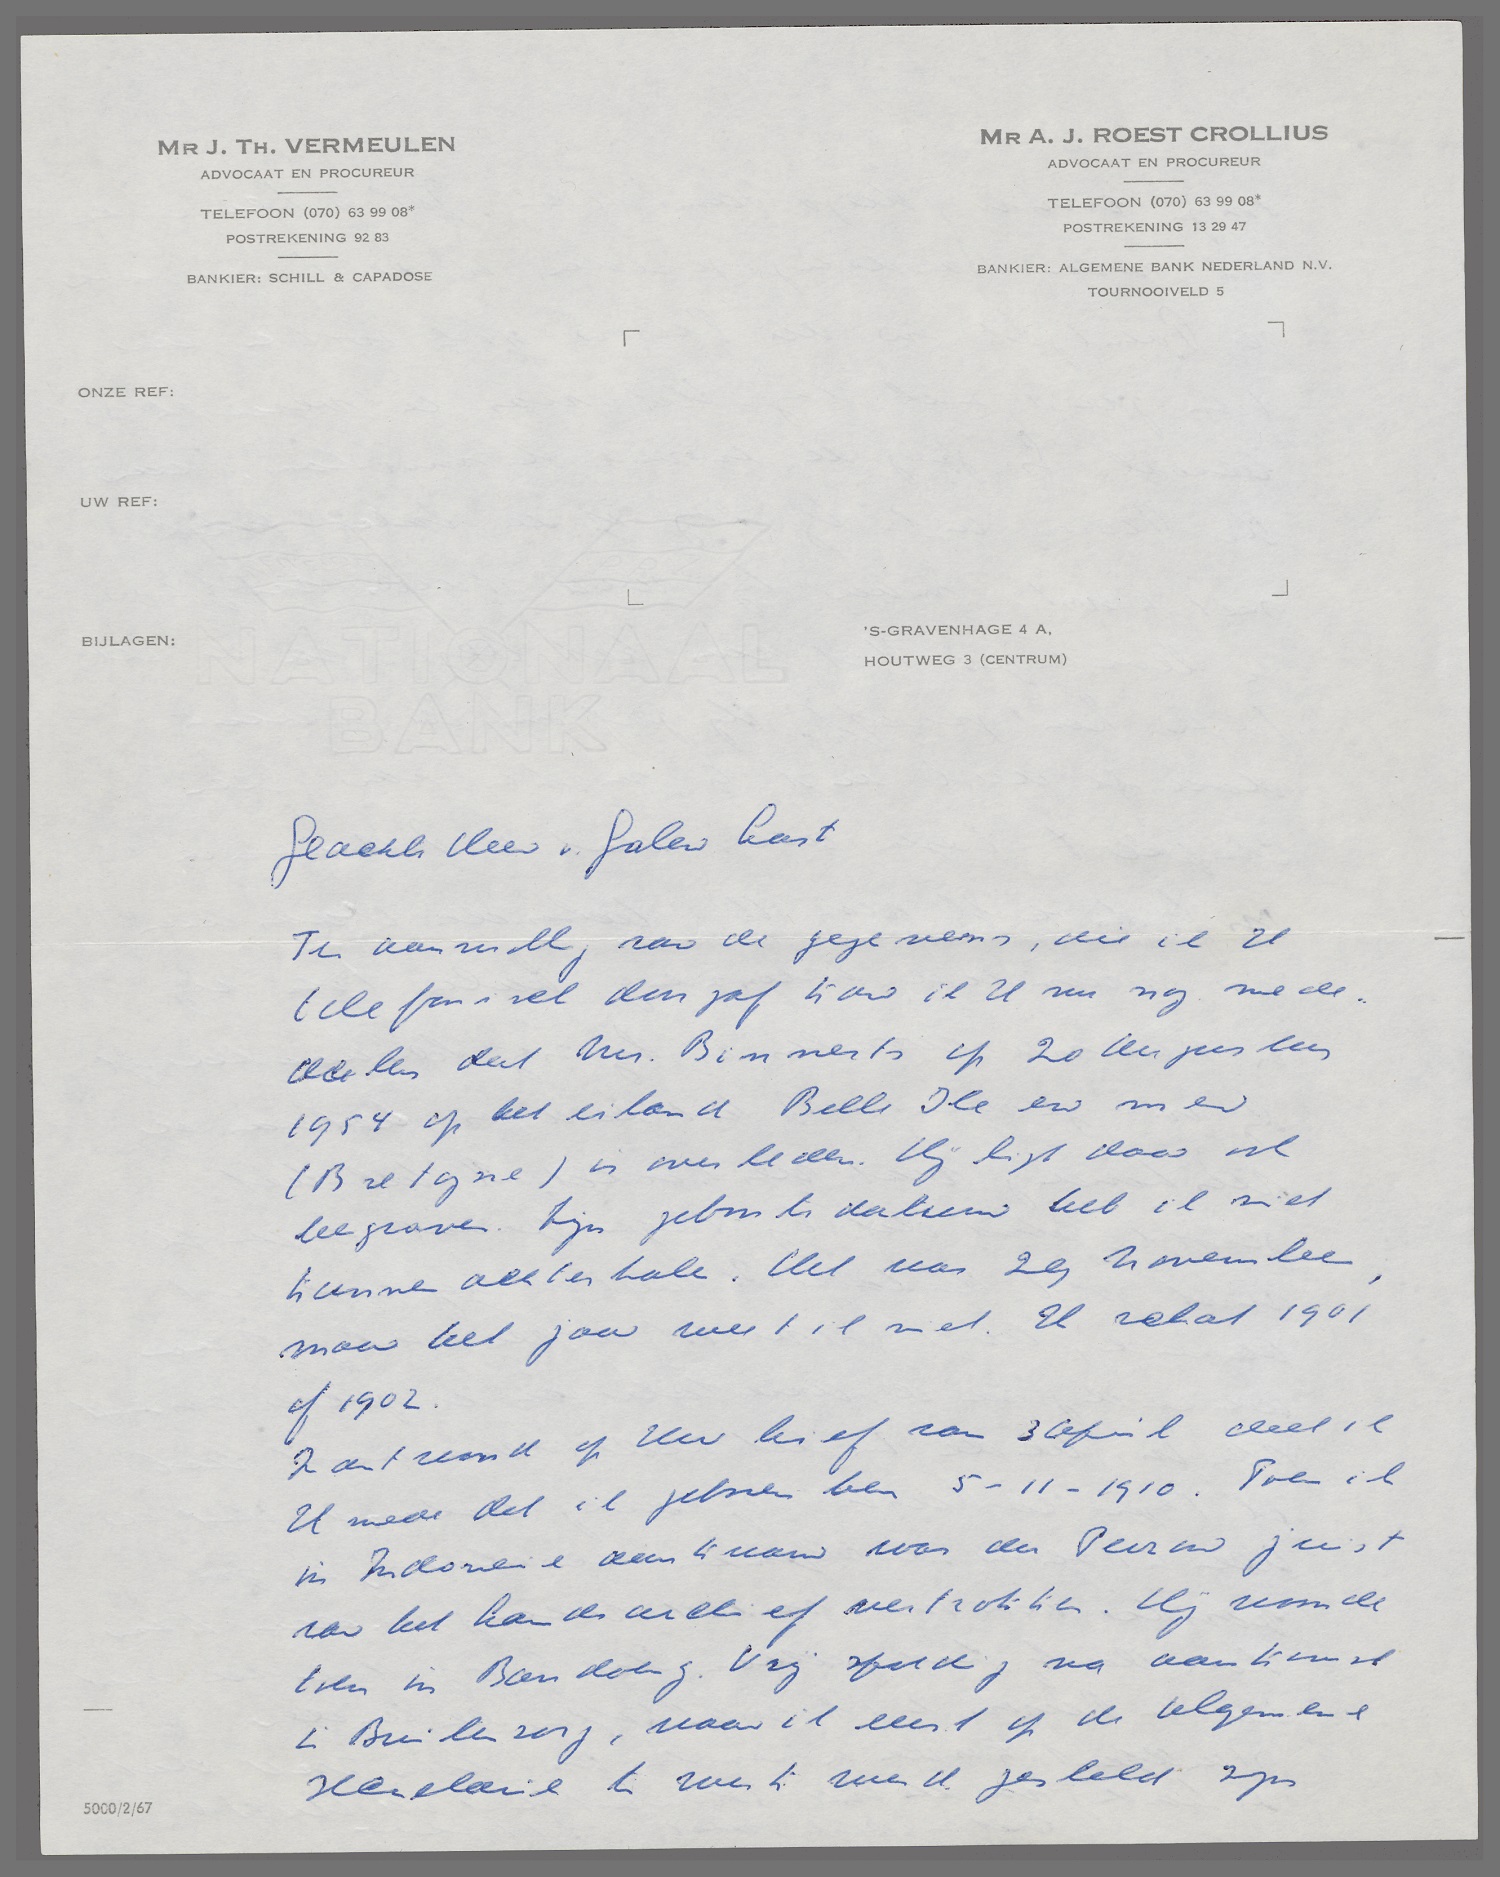 MR J. TH. VERMEULEN
ADVOCAAT EN PROCUREUR
TELEFOON (070) 63 99 08*
POSTREKENING 92 83
BANKIER: SCHILL & CAPADOSE
MR A. J. ROEST CROLLIUS
ADVOCAAT EN PROCUREUR
TELEFOON (070) 63 99 08*
POSTREKENING 13 29 47
BANKIER: ALGEMENE BANK NEDERLAND N.V.
TOURNOOIVELD 5
ONZE REF:
UW REF:
BIJLAGEN:
'S-GRAVENHAGE 4 A,
HOUTWEG 3 (CENTRUM)
NATIONAAL
BANK
Geachte Heer v. Galen Last
Ter aanvulling van de gegevens, die ik U
telefonisch doorgaf kan ik U nu nog mede-
delen dat Mr. Binnerts op 20 Augustus
1954 op het eiland Belle Ile en mer
(Bretagne) is overleden. Hij ligt daar ook
begraven. Zijn geboortedatum heb ik niet
kunnen achterhalen. Het was 29 November,
maar het jaar weet ik niet. Ik schat 1901
of 1902.
In antwoord op Uw brief van 3 April deel ik
U mede dat ik geboren ben 5-11-1910. Toen ik
in Indonesie aankwam was du Perron juist
van het Landsarchief vertrokken. Hij woonde
toen in Bandoeng. Vrij spoedig na aankomst
te Buitenzorg, waar ik eerst op de Algemene
Secretarie te werk werd gesteld zijn
5000/2/67